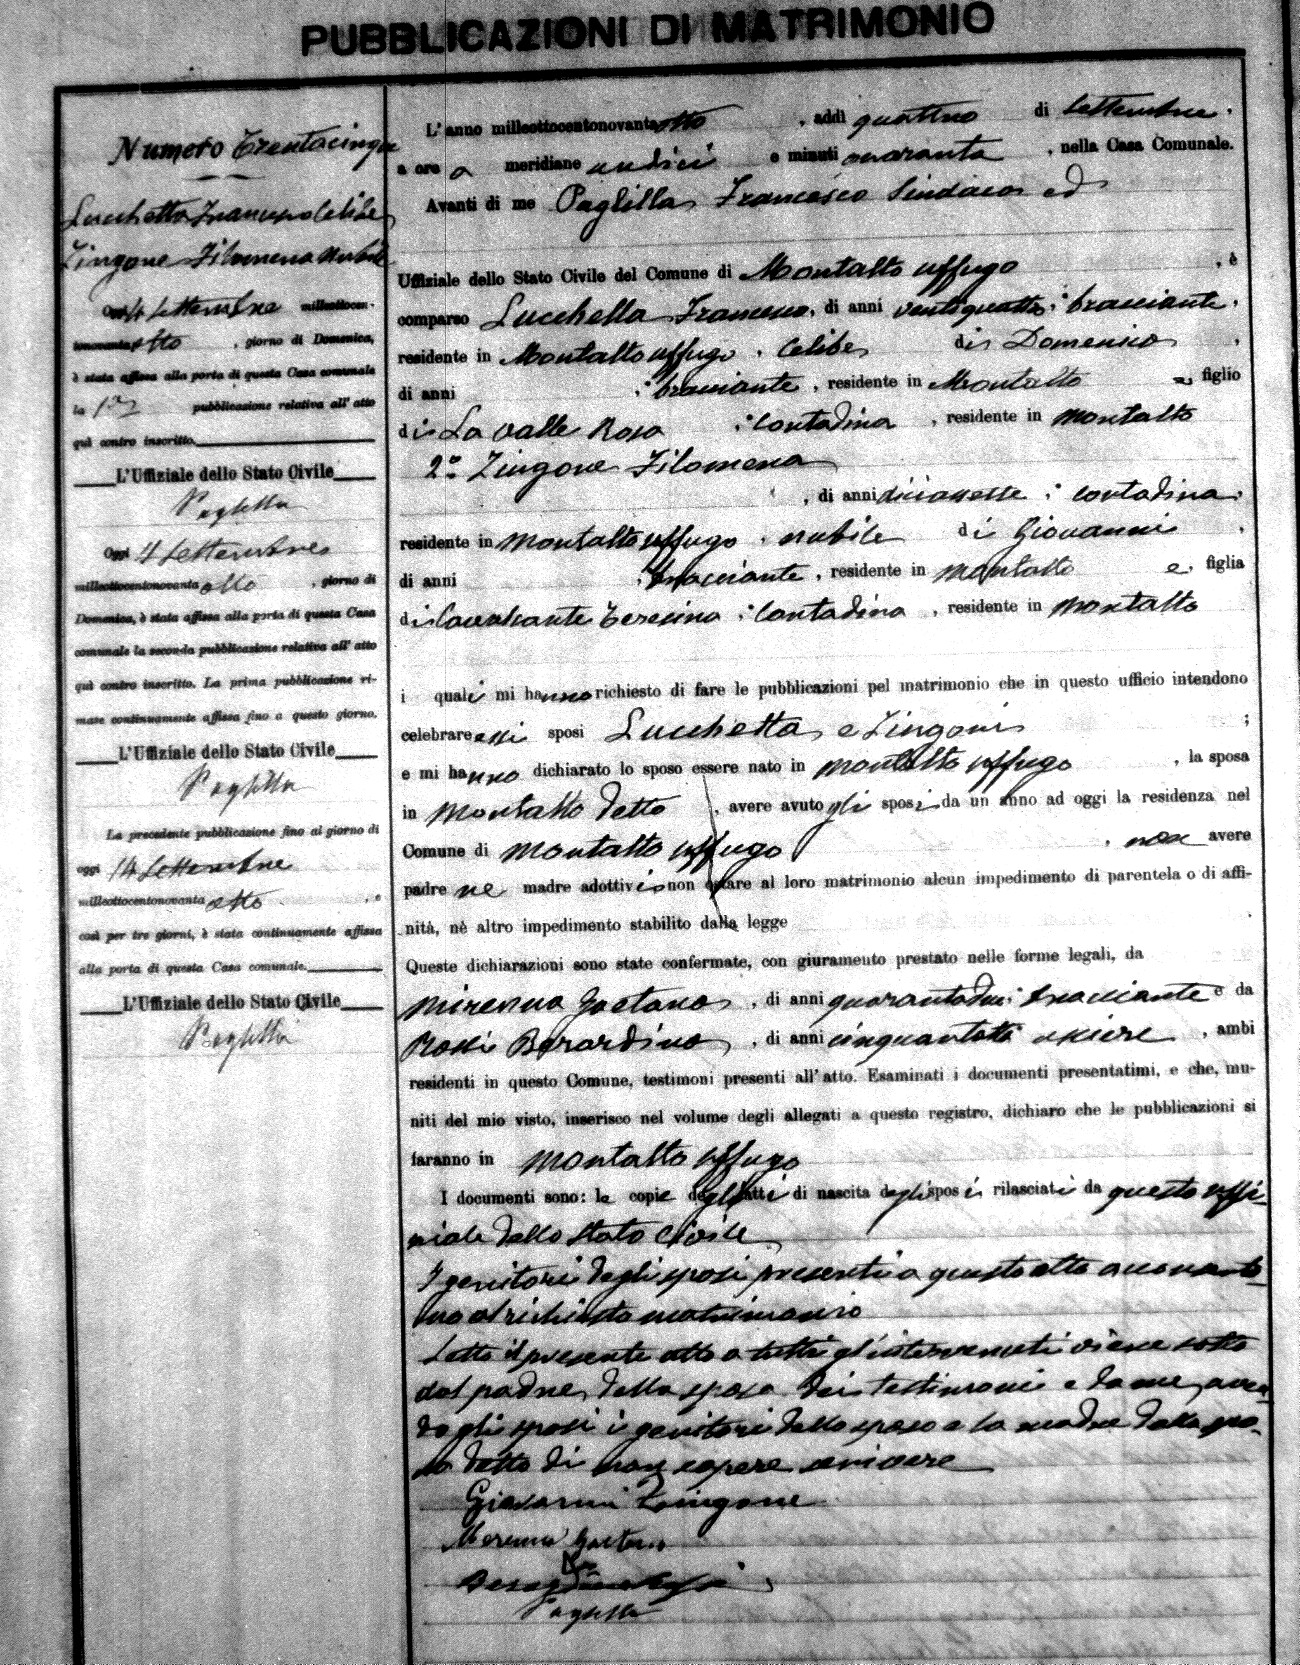 PUBBLICAZIONI DI MATRIMONIO
Numero Trentacinque
Lucchetta Francesco Celibe
Zingone Filomena Nubile
Oggi 4 Settembre milleottocen-
tonovanta otto, giorno di Domenica,
è stata affissa alla porta di questa Casa comunale
la 1a pubblicazione relativa all'atto
quì contro inscritto.
L'Uffiziale dello Stato Civile
Oggi 4 Settembre
milleottocentonovanta otto, giorno di
Domenica, è stata affissa alla porta di questa Casa
comunale la seconda pubblicazione relativa all'atto
quì contro inscritto. La prima pubblicazione ri-
mase continuamente affissa fino a questo giorno.
L'Uffiziale dello Stato Civile
La precedente pubblicazione fino al giorno di
oggi 14 Settembre
milleottocentonovanta otto, e
così per tre giorni, è stata continuamente affissa
alla porta di questa Casa comunale.
L'Uffiziale dello Stato Civile
L'anno milleottocentonovanta otto, addì quattro di Settembre,
a ore a meridiane undici e minuti quaranta, nella Casa Comunale.
Avanti di me Francesco Sindaco ed
Uffiziale dello Stato Civile del Comune di Montalto uffugo, è
comparso Lucchetta Francesco, di anni ventiquattro, bracciante,
residente in Montalto uffugo, Celibe di Domenico,
di anni , bracciante, residente in Montalto e, figlio
di La valle Rosa, Contadina, residente in Montalto
2° Zingone Filomena
, di anni diciassette, contadina,
residente in Montalto uffugo, nubile di Giovanni,
di anni , bracciante, residente in Montalto e, figlia
di Cavalcante Teresina, Contadina, residente in Montalto
i quali mi hanno richiesto di fare le pubblicazioni pel matrimonio che in questo ufficio intendono
celebrare essi sposi Lucchetta e Zingone;
e mi hanno dichiarato lo sposo essere nato in Montalto uffugo, la sposa
in Montalto detto, avere avuto gli sposi da un anno ad oggi la residenza nel
Comune di Montalto uffugo, non avere
padre ne madre adottivi e non ostare al loro matrimonio alcun impedimento di parentela o di affi-
nità, nè altro impedimento stabilito dalla legge
Queste dichiarazioni sono state confermate, con giuramento prestato nelle forme legali, da
Gaetano, di anni quarantadue, bracciante e da
Rossi Berardino, di anni cinquantotto usciere, ambi
residenti in questo Comune, testimoni presenti all'atto. Esaminati i documenti presentatimi, e che, mu-
niti del mio visto, inserisco nel volume degli allegati a questo registro, dichiaro che le pubblicazioni si
faranno in Montalto uffugo
I documenti sono: le copie degli atti di nascita degli sposi rilasciati da questo uffi-
ziale dello stato Civile
I genitori degli sposi presenti a questo atto acconsento-
no al richiesto matrimonio
Letto il presente atto a tutti gl'intervenuti viene sotto
dal padre della sposa dei testimoni e da me, aven-
do gli sposi i genitori dello sposo e la madre della spo-
sa detto di non sapere scrivere
Giovanni Zingone
Gaetano